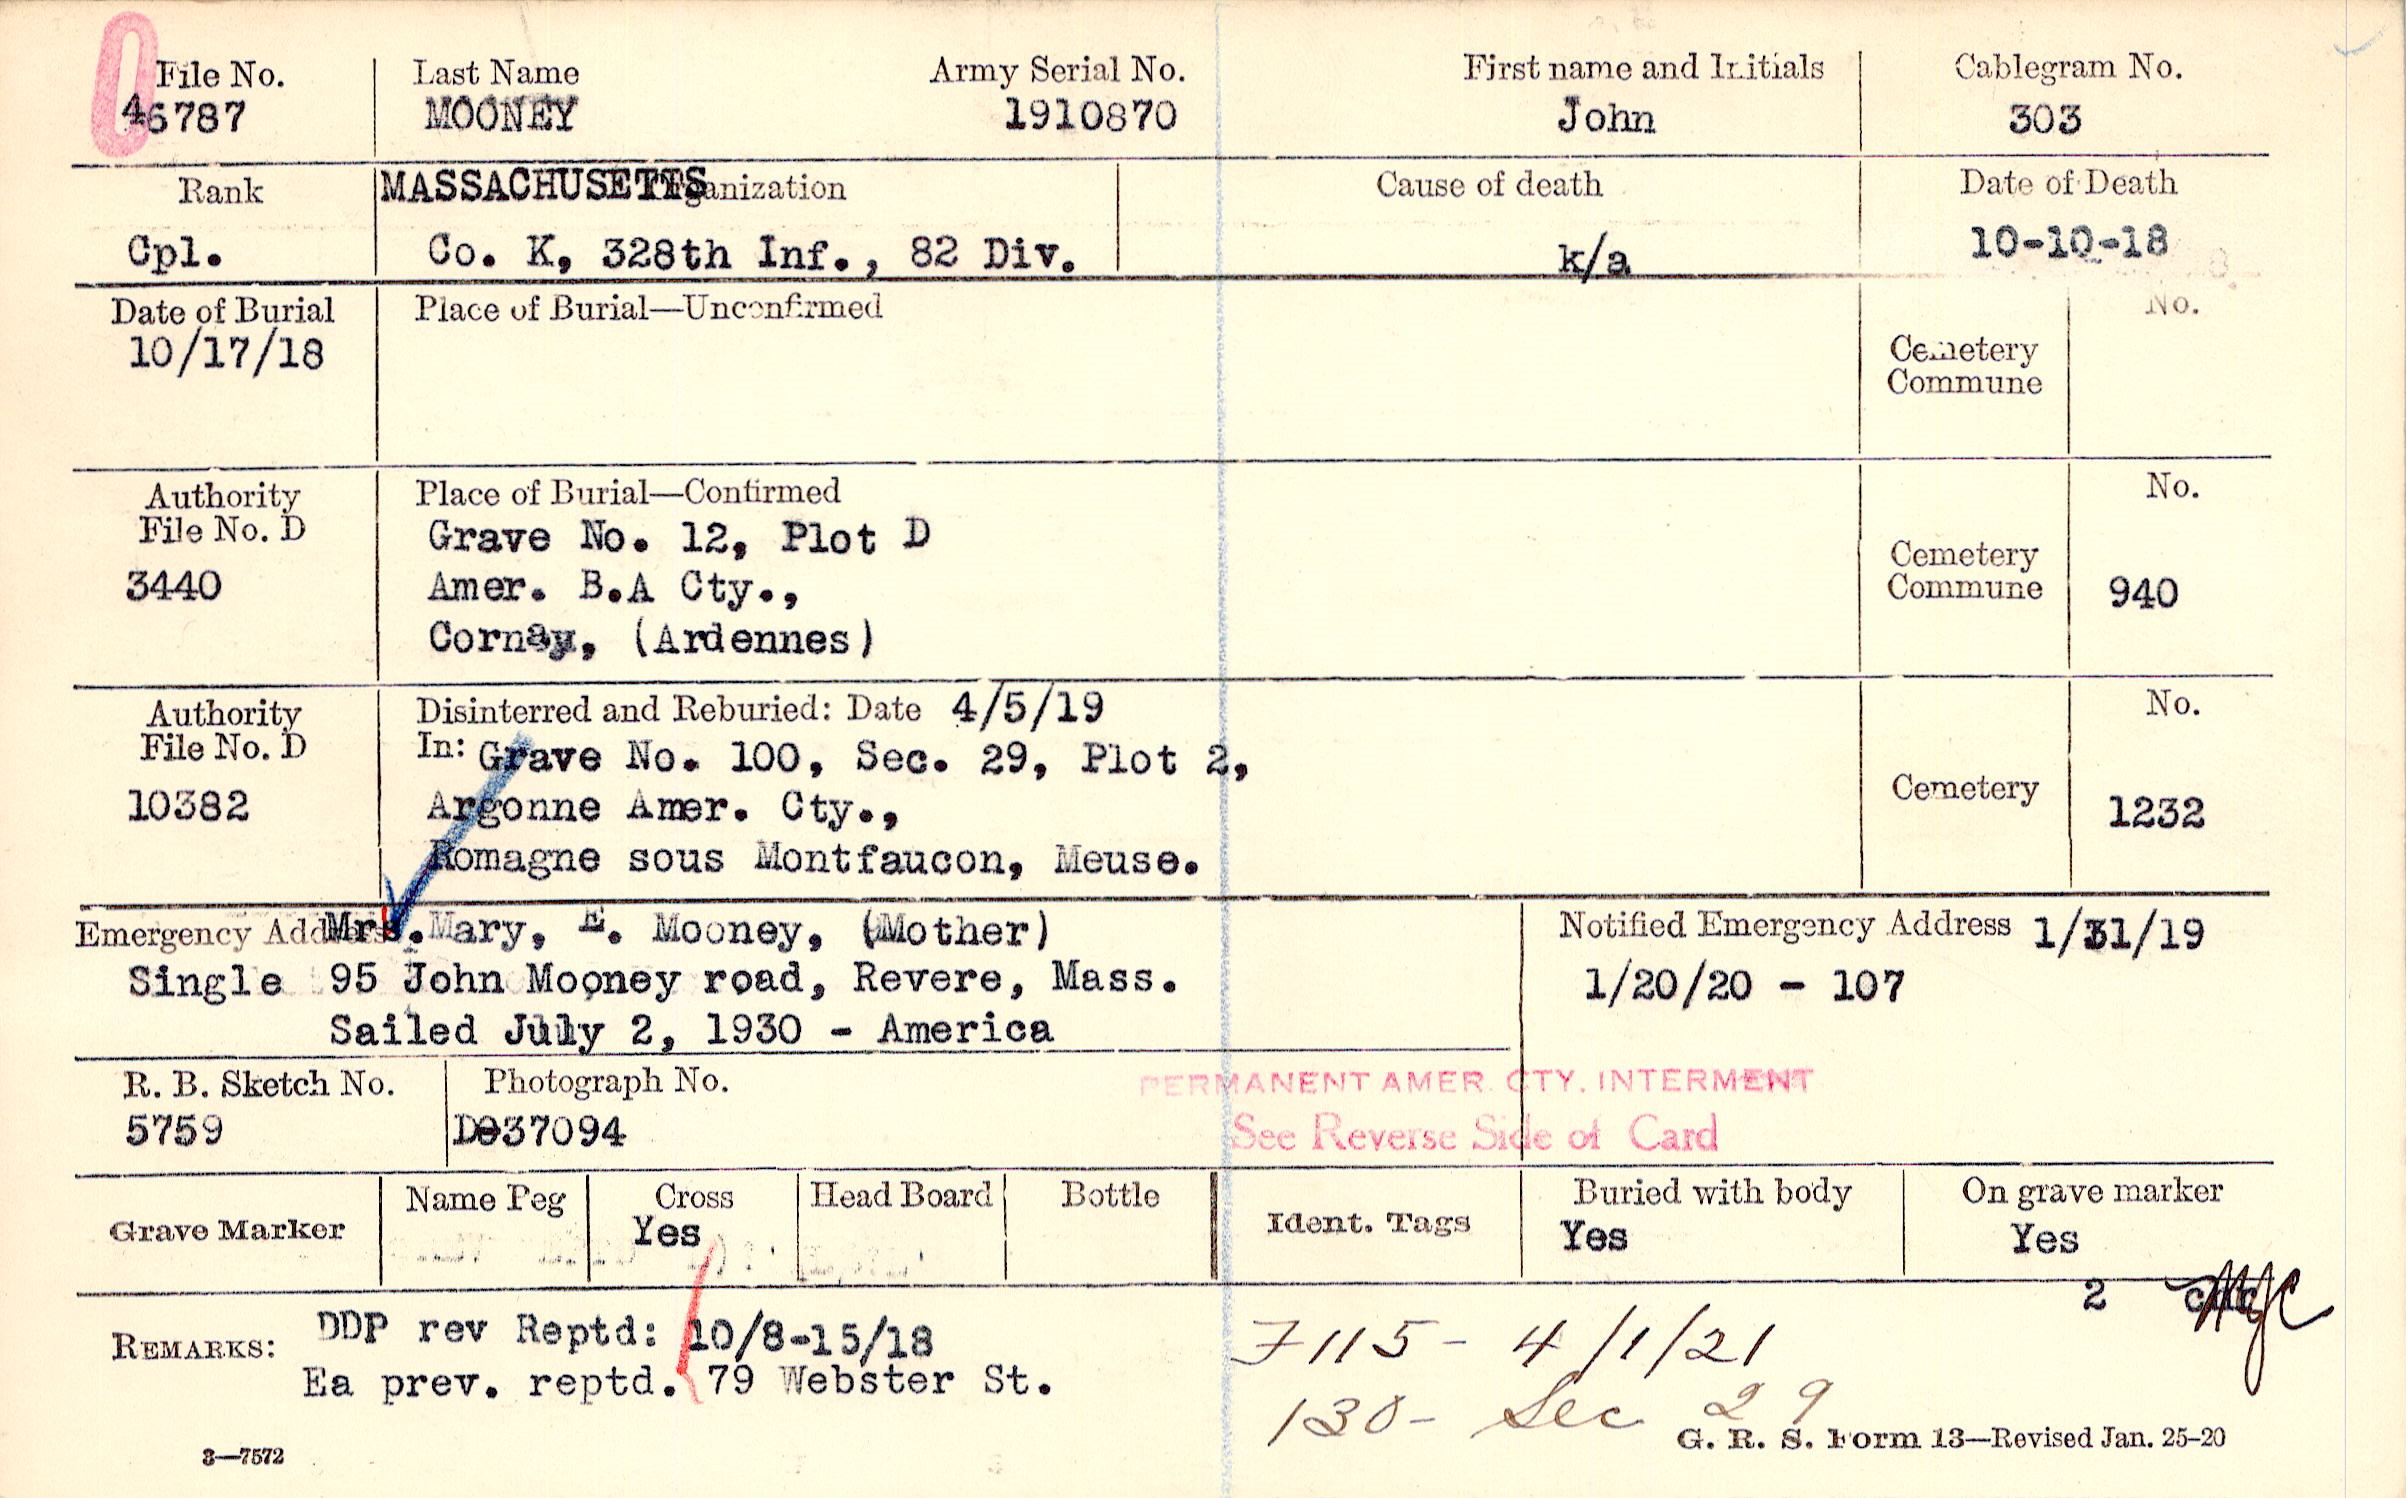 File No. Last Name Army Serial No. First name and Initials Cablegram No.
46787 MOONEY 1910870 John 303
Rank MASSACHUSETTS Organization Cause of death Date of Death
Cpl. Co. K, 328th Inf., 82 Div. k/a 10-10-18
Date of Burial Place of Burial—Unconfirmed No.
10/17/18 Cemetery
Commune
Authority Place of Burial—Confirmed No.
File No. D Grave No. 12, Plot D
3440 Amer. B.A Cty., Cemetery
Commune 940
Cornay, (Ardennes)
Authority Disinterred and Reburied: Date 4/5/19 No.
File No. D In: Grave No. 100, Sec. 29, Plot 2,
10382 Argonne Amer. Cty., Cemetery 1232
Romagne sous Montfaucon, Meuse.
Emergency Address Mrs. Mary, E. Mooney, (Mother) Notified Emergency Address 1/31/19
Single 95 John Mooney road, Revere, Mass. 1/20/20 - 107
Sailed July 2, 1930 - America
R. B. Sketch No. Photograph No. PERMANENT AMER. CTY. INTERMENT
5759 D037094 See Reverse Side of Card
Grave Marker Name Peg Cross Head Board Bottle Ident. Tags Buried with body On grave marker
Yes Yes Yes
2
REMARKS: DDP rev Reptd: 10/8-15/18 F115- 4/1/21
Ea prev. reptd. 79 Webster St. 130- Sec 29
3—7572 G. R. S. Form 13—Revised Jan. 25-20